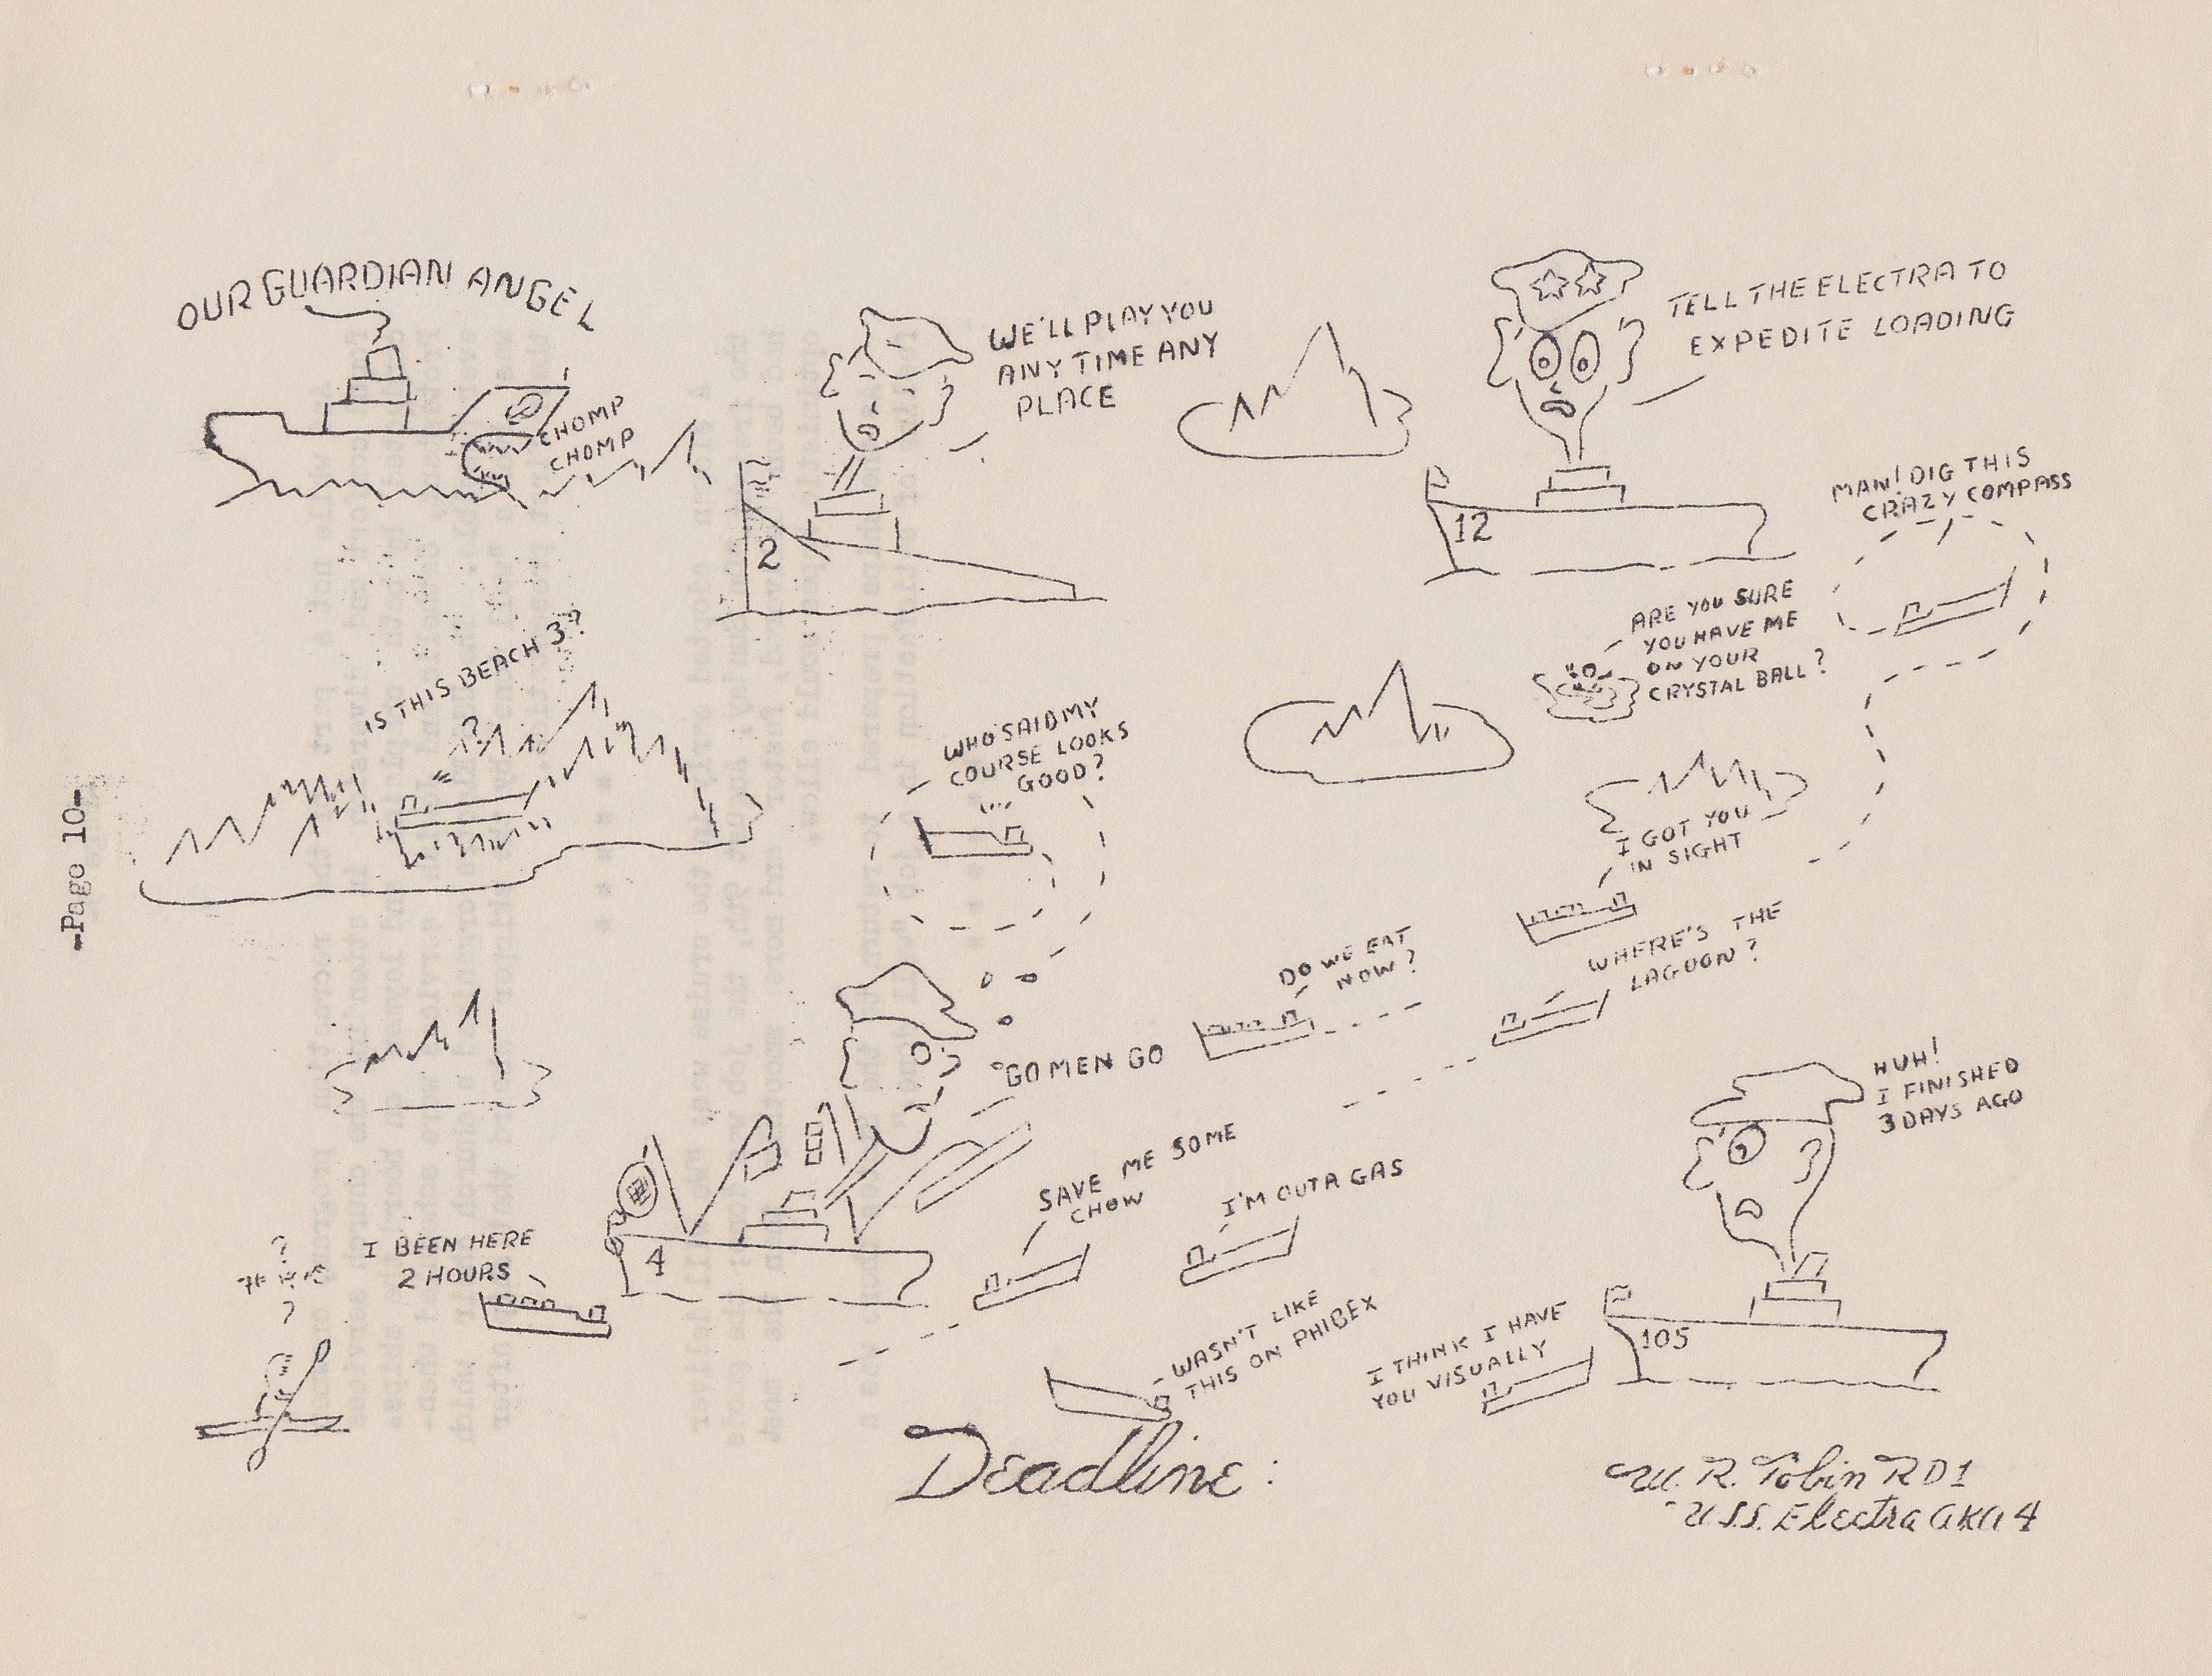 OUR GUARDIAN ANGEL
CHOMP
CHOMP
WE'LL PLAY YOU
ANY TIME ANY
PLACE
2
TELL THE ELECTRA TO
EXPEDITE LOADING
12
MAN! DIG THIS
CRAZY COMPASS
ARE YOU SURE
YOU HAVE ME
ON YOUR
CRYSTAL BALL?
IS THIS BEACH 3?
?
WHO SAID MY
COURSE LOOKS
GOOD?
I GOT YOU
IN SIGHT
-Page 10-
DO WE EAT
NOW?
WHERE'S THE
LAGOON?
GO MEN GO
HUH!
I FINISHED
3 DAYS AGO
SAVE ME SOME
CHOW
I'M OUTA GAS
4
I BEEN HERE
2 HOURS
?
?
WASN'T LIKE
THIS ON PHIBEX
I THINK I HAVE
YOU VISUALLY
105
Deadline:
W. R. Tobin RD1
U.S.S. Electra AKA 4